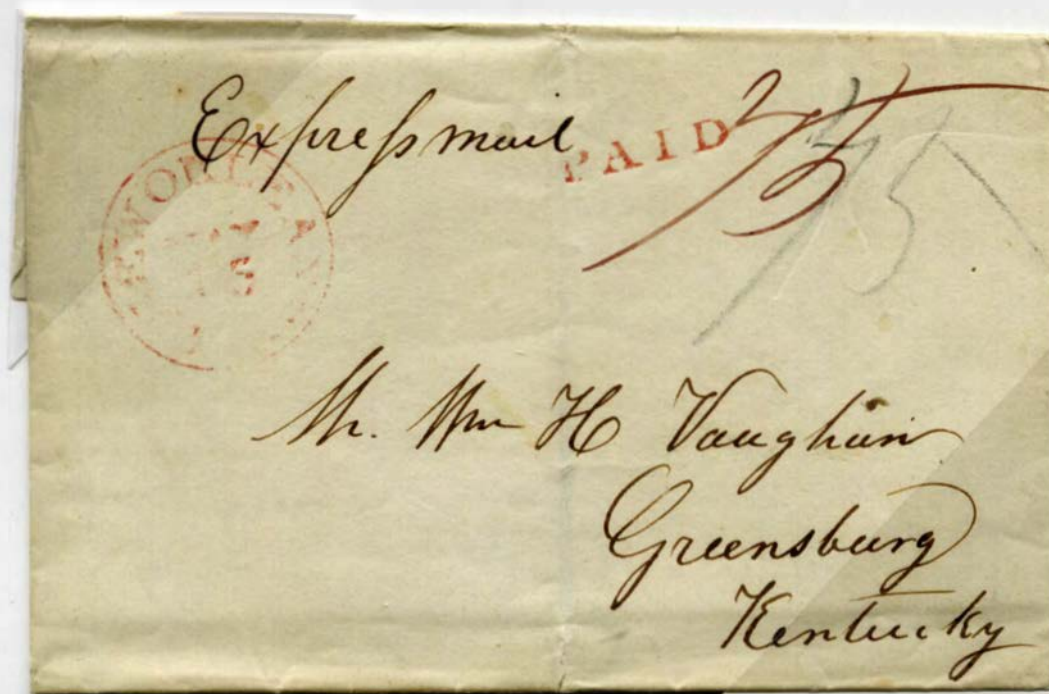 Expreſsmail
PAID 75
75
NEW ORLEAN
MAY
Mr. Wm H Vaughan
Greensburg
Kentucky